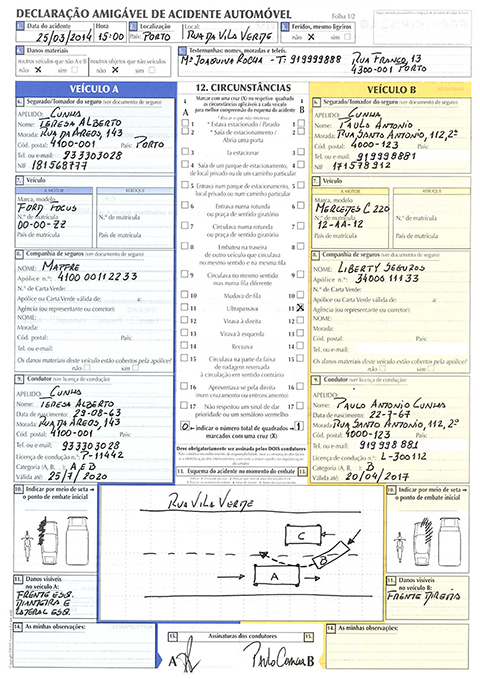 DECLARAÇÃO AMIGÁVEL DE ACIDENTE AUTOMÓVEL
Folha 1/2
1. Data do acidente Hora
25/03/2014 15:00
2. Localização
País: PORTO
Local:
RUA DA VILA VERDE
3. Feridos, mesmo ligeiros
não X sim
4. Danos materiais
noutros veículos que não A e B
noutros objectos que não veículos
não X sim não X sim
5. Testemunhas: nomes, moradas e telefs.
Mª JOAQUINA ROCHA - T: 919999888 RUA FRANCO, 13
4300-001 PORTO
VEÍCULO A
6. Segurado/Tomador do seguro (ver documento de seguro)
APELIDO: CUNHA
NOME: TERESA ALBERTO
Morada: RUA DA ARGOS, 143
Cód. postal: 4100-001 País: PORTO
Tel. ou e-mail: 933303028
NIF 181568777
7. Veículo
A MOTOR REBOQUE
Marca, modelo
FORD FOCUS
N.º de matrícula N.º de matrícula
00-00-ZZ
País de matrícula País de matrícula
8. Companhia de seguros (ver documento de seguro)
NOME: MAPFRE
Apólice n.º: 4100 00112233
N.º de Carta Verde:
Apólice ou Carta Verde válida de: a:
Agência (ou representante ou corretor):
NOME:
Morada:
País:
Tel. ou e-mail:
Os danos materiais deste veículo estão cobertos pela apólice?
não sim
9. Condutor (ver licença de condução)
APELIDO: CUNHA
NOME: TERESA ALBERTO
Data de nascimento: 29-08-63
Morada: RUA DA ARGOS, 143
Cód. postal: 4100-001 País:
Tel. ou e-mail: 933303028
Licença de condução n.º: P-11442
Categoria (A, B, ): A E B
Válida até: 25/7/2020
10. Indicar por meio de seta
o ponto de embate inicial
11. Danos visíveis
no veículo A:
FRENTE ESQ.
DIANTEIRA E
LATERAL ESQ.
14. As minhas observações:
12. CIRCUNSTÂNCIAS
Marcar com uma cruz (X) no respectivo quadrado
as circunstâncias aplicáveis a cada veículo
para melhor compreensão do esquema do acidente
A B
* Riscar o que não interessa
1 * Estava estacionado / Parado 1
2 * Saía de estacionamento / 2
Abria uma porta
3 Ia estacionar 3
4 Saía de um parque de estacionamento, 4
de local privado ou de um caminho particular
5 Entrava num parque de estacionamento, 5
local privado ou num caminho particular
6 Entrava numa rotunda 6
ou praça de sentido giratório
7 Circulava numa rotunda 7
ou praça de sentido giratório
8 Embateu na traseira 8
de outro veículo que circulava
no mesmo sentido e na mesma fila
9 Circulava no mesmo sentido 9
mas numa fila diferente
10 Mudava de fila 10
11 Ultrapassava 11 X
12 Virava à direita 12
13 Virava à esquerda 13
14 Recuava 14
15 Circulava na parte da faixa 15
de rodagem reservada
à circulação em sentido contrário
16 Apresentava-se pela direita 16
(num cruzamento ou entroncamento)
17 Não respeitou um sinal de dar 17
prioridade ou um semáforo vermelho
0 indicar o número total de quadrados 1
marcados com uma cruz (X)
Deve obrigatoriamente ser assinado pelos DOIS condutores
13. Esquema do acidente no momento do embate 13.
RUA VILA VERDE
C
B
A
15. Assinaturas dos condutores 15.
A Paulo Cunha B
VEÍCULO B
6. Segurado/Tomador do seguro (ver documento de seguro)
APELIDO: CUNHA
NOME: PAULO ANTONIO
Morada: RUA SANTO ANTONIO, 112, 2º
Cód. postal: 4000-123 País:
Tel. ou e-mail: 919998881
NIF 171578912
7. Veículo
A MOTOR REBOQUE
Marca, modelo
MERCEDES C 220
N.º de matrícula N.º de matrícula
12-AA-12
País de matrícula País de matrícula
8. Companhia de seguros (ver documento de seguro)
NOME: LIBERTY SEGUROS
Apólice n.º: 34000 11133
N.º de Carta Verde:
Apólice ou Carta Verde válida de: a:
Agência (ou representante ou corretor):
NOME:
Morada:
País:
Tel. ou e-mail:
Os danos materiais deste veículo estão cobertos pela apólice?
não sim
9. Condutor (ver licença de condução)
APELIDO:
NOME: PAULO ANTONIO CUNHA
Data de nascimento: 22-7-67
Morada: RUA SANTO ANTONIO, 112, 2º
Cód. postal: 4000-123 País:
Tel. ou e-mail: 919 998 881
Licença de condução n.º: L-300112
Categoria (A, B, ): B
Válida até: 20/04/2017
10. Indicar por meio de seta
o ponto de embate inicial
11. Danos visíveis
no veículo B:
FRENTE DIREITA
14. As minhas observações: